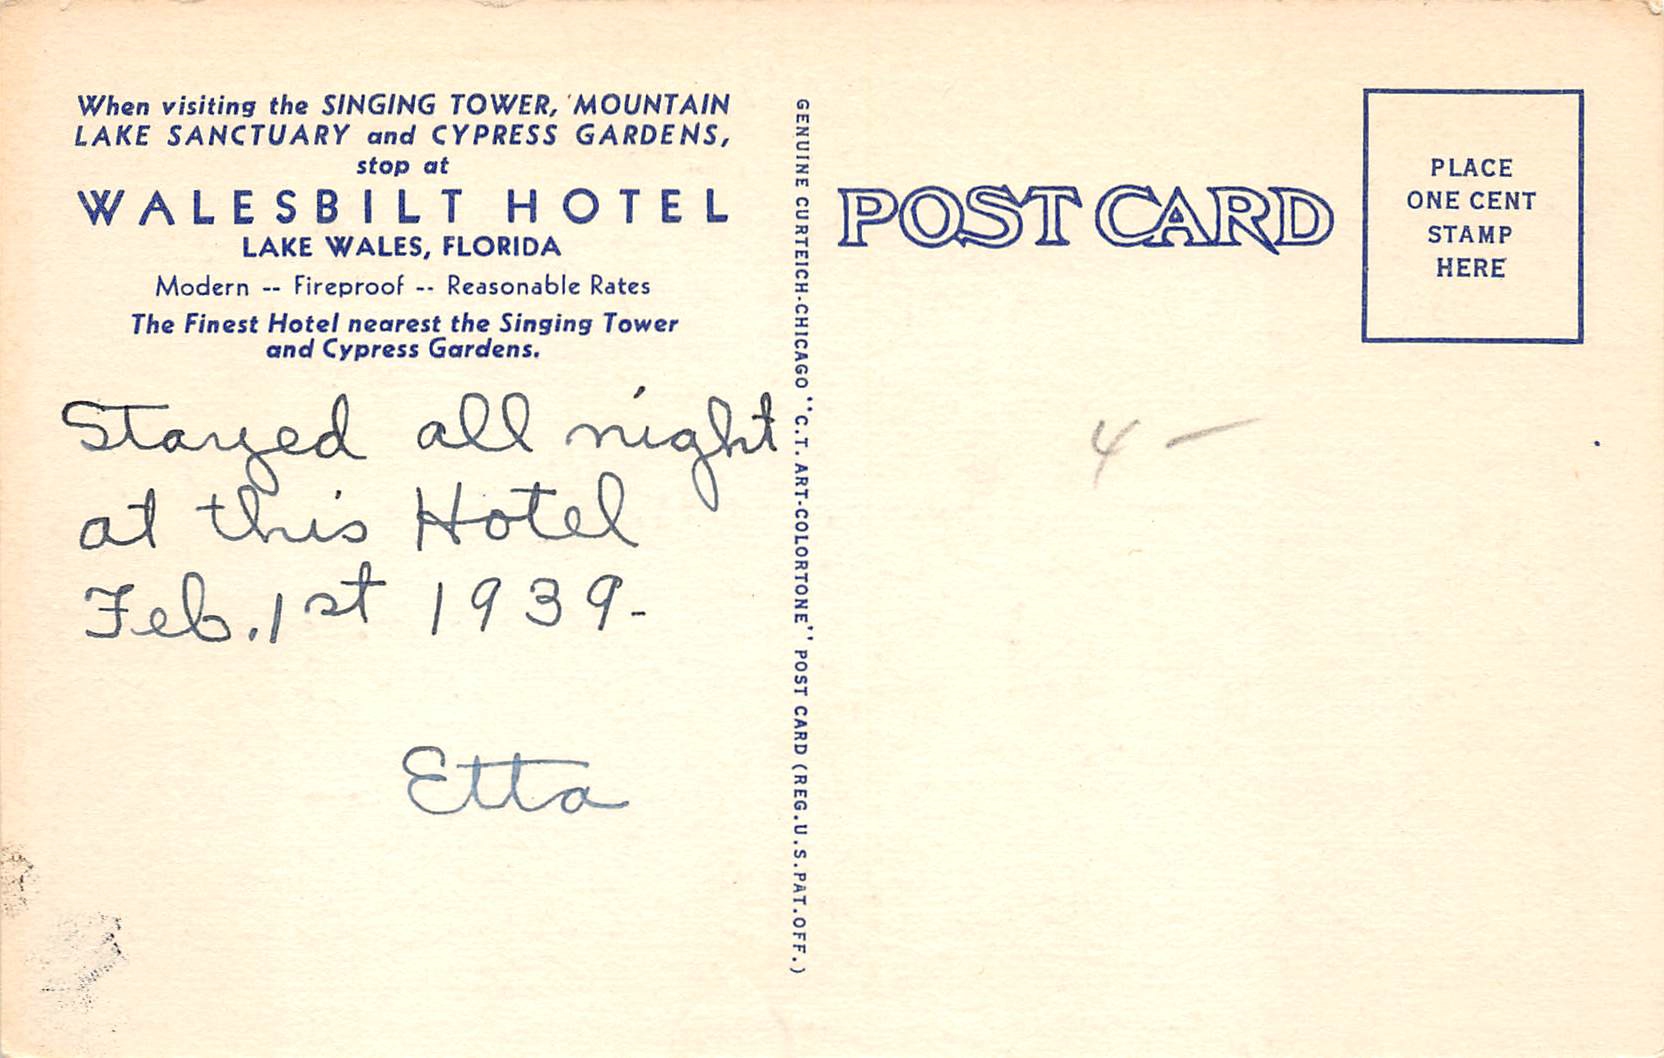 When visiting the SINGING TOWER, MOUNTAIN
LAKE SANCTUARY and CYPRESS GARDENS,
stop at
WALESBILT HOTEL
LAKE WALES, FLORIDA
Modern -- Fireproof -- Reasonable Rates
The Finest Hotel nearest the Singing Tower
and Cypress Gardens.
Stayed all night
at this Hotel
Feb. 1st 1939-
Etta
GENUINE CURTEICH-CHICAGO "C.T. ART-COLORTONE" POST CARD (REG. U.S. PAT. OFF.)
POST CARD
PLACE
ONE CENT
STAMP
HERE
4 -